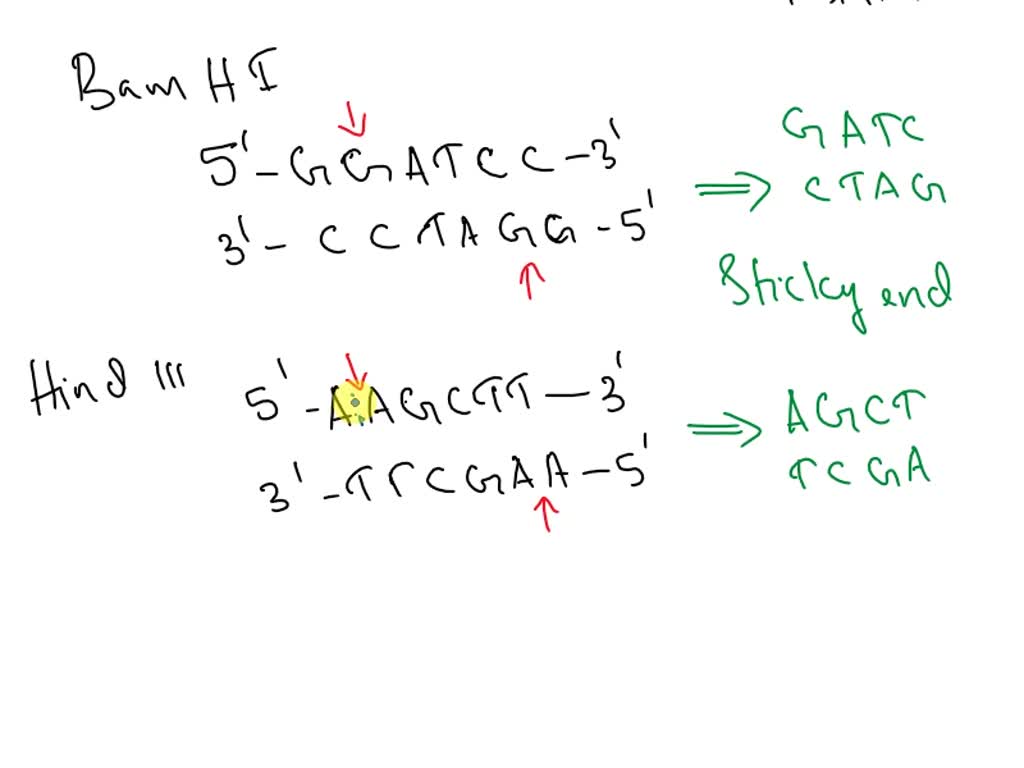 Bam H I
5'-GGATCC-3'
3'-CCTAGG-5'
⇒ GATC
CTAG
Sticky end
Hind III
5'-AAGCTT-3'
3'-TTCGAA-5'
⇒ AGCT
TCGA